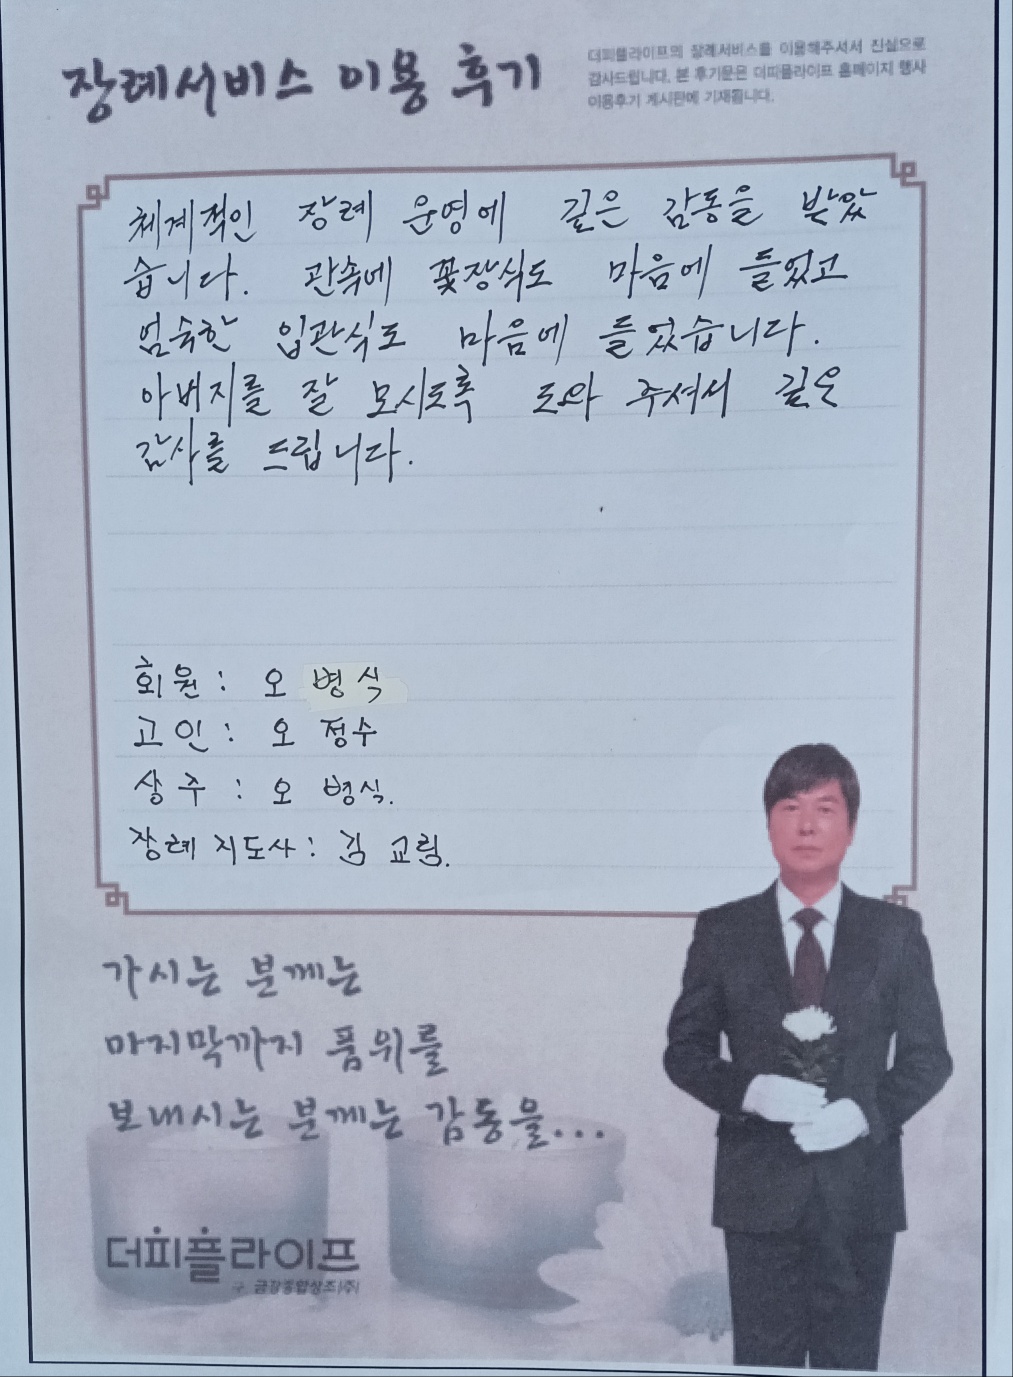 장례서비스 이용 후기
더피플라이프의 장례서비스를 이용해주셔서 진심으로
감사드립니다. 본 후기문은 더피플라이프 홈페이지 행사
이용후기 게시판에 기재됩니다.
체계적인 장례 운영에 깊은 감동을 받았
습니다. 관속에 꽃장식도 마음에 들었고
엄숙한 입관식도 마음에 들었습니다.
아버지를 잘 모시도록 도와 주셔서 깊은
감사를 드립니다.
회원 : 오 병식
고인 : 오 정수
상주 : 오 병식.
장례 지도사 : 김 교림.
가시는 분께는
마지막까지 품위를
보내시는 분께는 감동을...
더피플라이프
구. 금강종합상조(주)